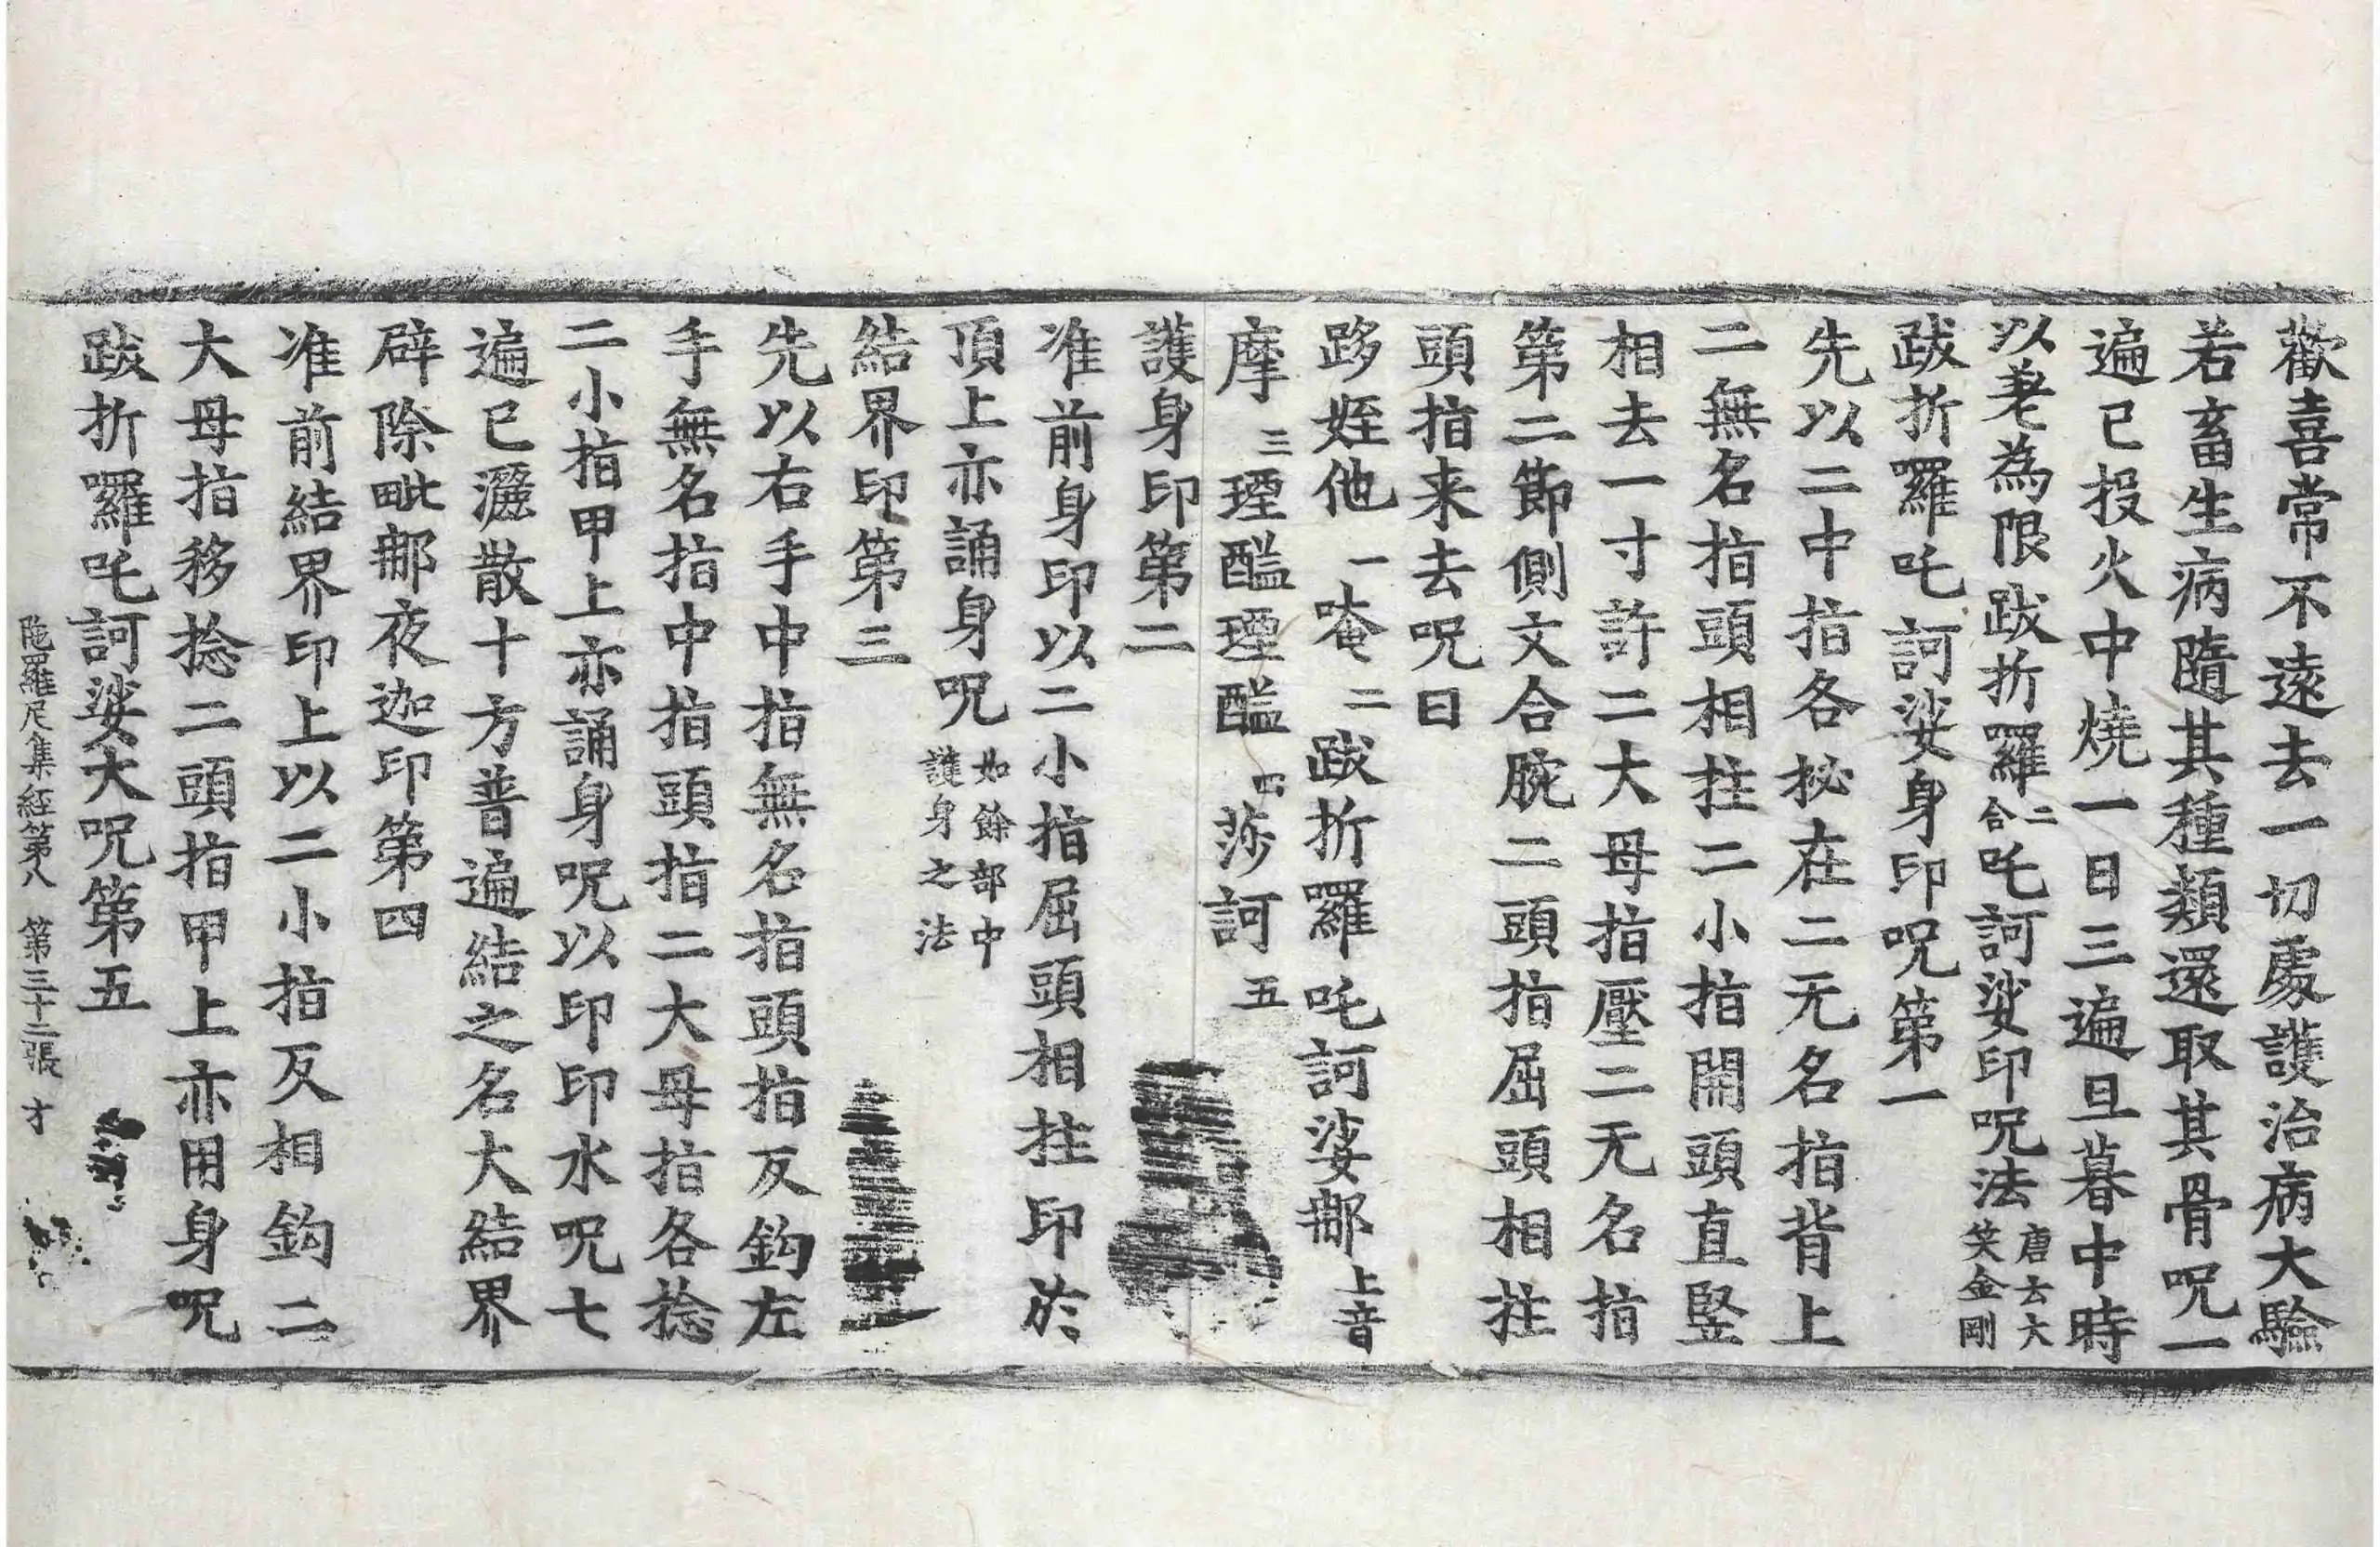 歡喜常不遠去一切處護治病大驗
若畜生病隨其種類還取其骨呪一
遍已投火中燒一日三遍旦暮中時
以差為限跋折囉二合吒訶娑印呪法唐云大笑金剛
跋折囉吒訶娑身印呪第一
先以二中指各拟在二无名指背上
二無名指頭相拄二小指開頭直竪
相去一寸許二大母指壓二无名指
第二節側文合腕二頭指屈頭相拄
頭指来去呪曰
跢姪他一唵二跋折囉吒訶娑那上音
摩三瑿醯瑿醯四莎訶五
護身印第二
准前身印以二小指屈頭相拄印於
頂上亦誦身呪如餘部中護身之法
結界印第三
先以右手中指無名指頭指反鈎左
手無名指中指頭指二大母指各捻
二小指甲上亦誦身呪以印印水呪七
遍已灑散十方普遍結之名大結界
辟除毗那夜迦印第四
准前結界印上以二小指反相鈎二
大母指移捻二頭指甲上亦用身呪
跋折囉吒訶娑大呪第五
陁羅尼集經第八 第三十二張 才